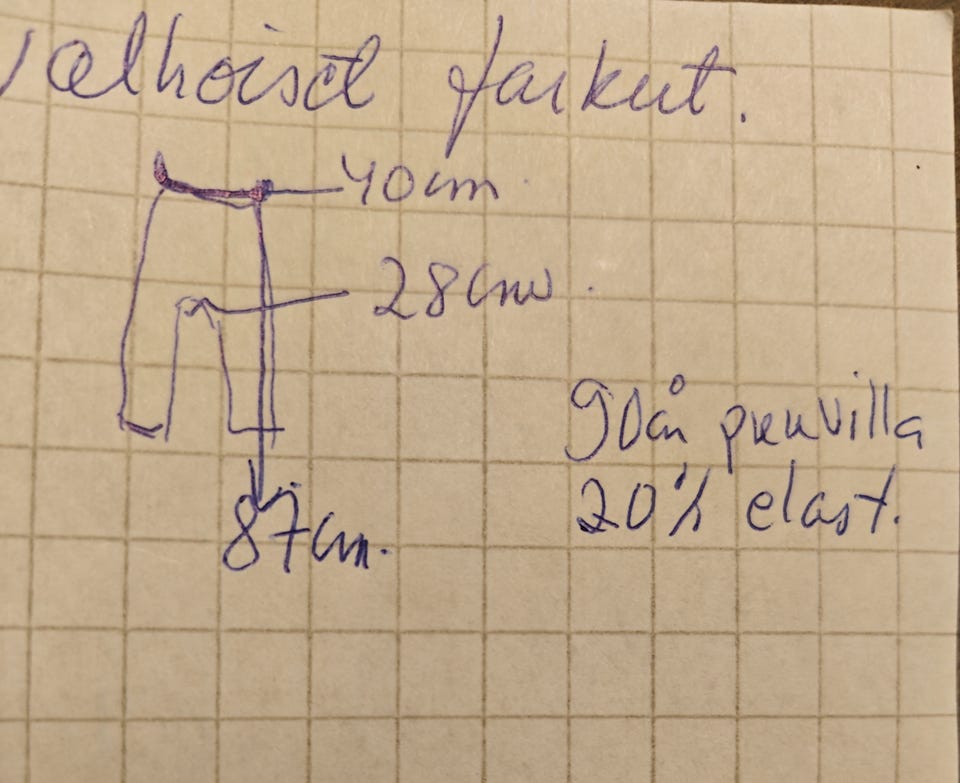 valkoiset farkut.
40cm
28cm
90% puuvilla
20% elast.
87cm.